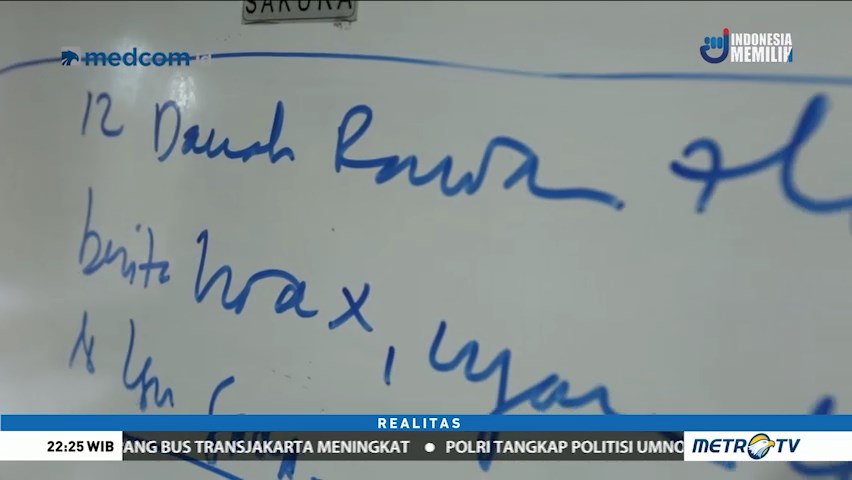 SAKURA
medcom.id
INDONESIA
MEMILIH
12 Daerah Rawan
berita hoax, ujar
REALITAS
22:25 WIB
RANG BUS TRANSJAKARTA MENINGKAT ● POLRI TANGKAP POLITISI UMNO
METRO TV